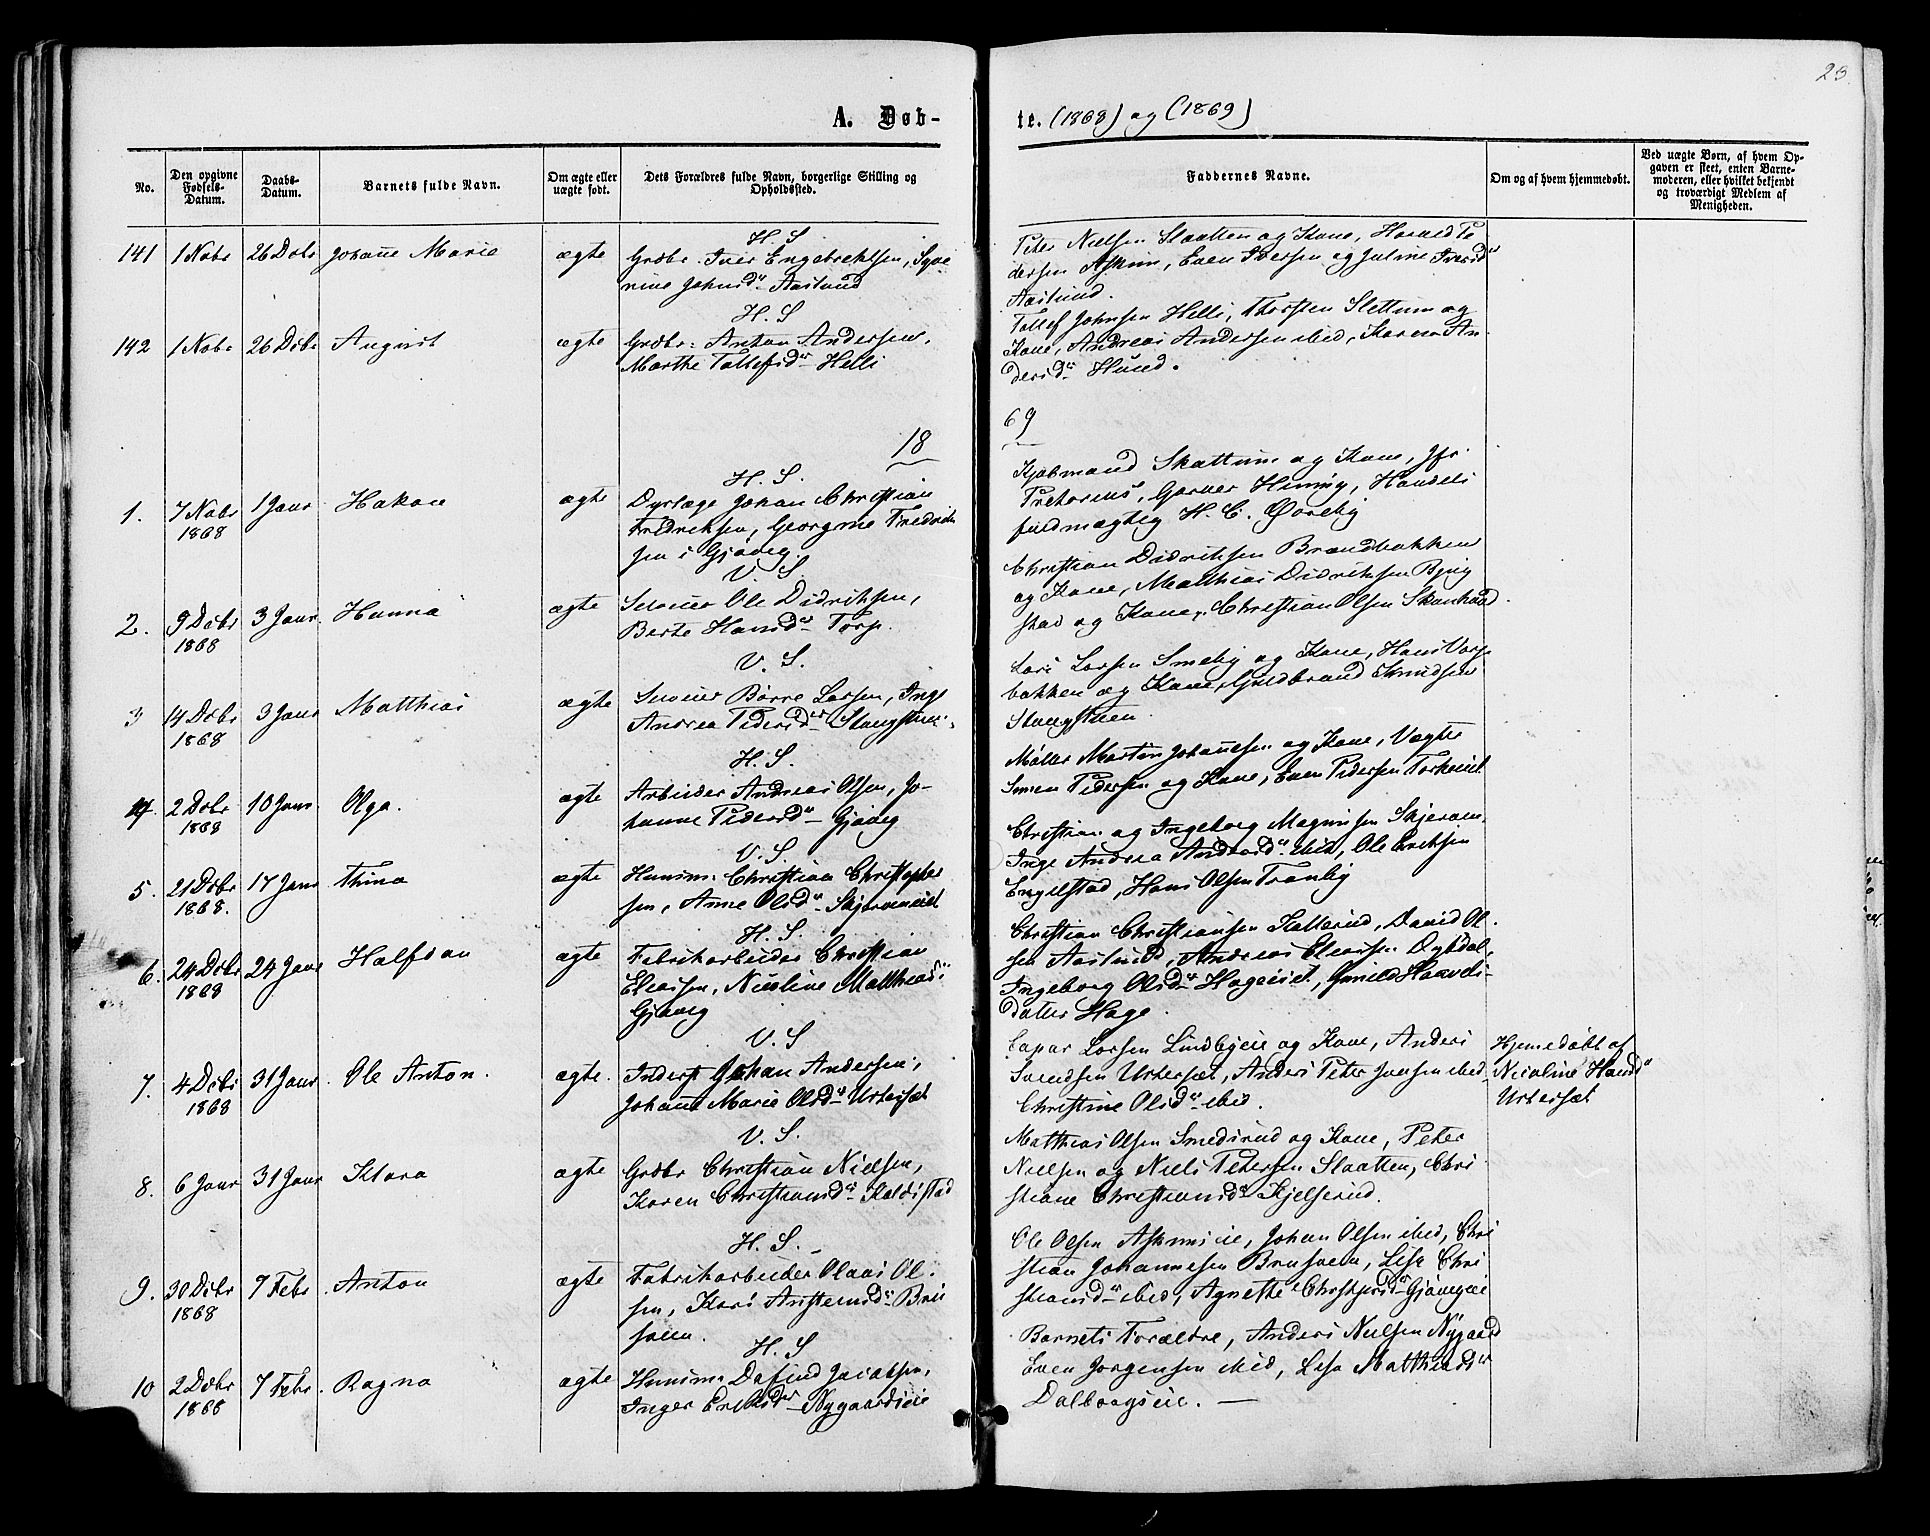 23.
A. Døb-
te. (1868) og (1869)
No.
Den opgivne Fødsels-Datum.
Daabs-Datum.
Barnets fulde Navn.
Om ægte eller uægte født.
Dets Forældres fulde Navn, borgerlige Stilling og Opholdssted.
Faddernes Navne.
Om og af hvem hjemmedøbt.
Ved uægte Børn, af hvem Opgaven er skeet, enten Barnemoderen, eller hvilket bekjendt og troværdigt Medlem af Menigheden.
H. S
141 1 Nobr 26 Dbr Johanne Marie ægte Grdbr. Iver Engebrektsen, Syve
rine Johnsdr Aaslund
Peter Nielsen Slaatten og Kone, Harald Pe
dersen Askim, Even Iversen og Juline Iversdr
Aaslund.
H. S
142 1 Nobr 26 Dbr August ægte Grdbr. Anton Andersen,
Marthe Tollefsdr Helli
Tollef Johnsen Helli, Thorsten Slettum og
Kone, Andreas Andersen ibid, Karen An
dersdr Hund.
18
69
H. S.
1. 7 Nobr 1868 1 Janr Hakon ægte Dyrlæge Johan Christian
Fredriksen, Georgine Fredrik
sen i Gjøvig.
Kjøbmand Skattum og Kone, Jfr.
Pretorius, Garver Heming, Handels
fuldmægtig H. C. Øveby
V. S.
2. 9 Dbr 1868 3 Janr Hanna ægte Ole Didriksen,
Berte Hansdr Torp.
Christian Didriksen Brændbakken
og Kone, Matthias Didriksen Byug
stad og Kone, Christian Olsen
V. S.
3 14 Dbr 1868 3 Janr Matthias ægte Børre Larsen, Inge
Andrea Pedersdr Stangstuen.
Lars Larsen Smeby og Kone, Hans
bakken og Kone, Guldbrand Knudsen
Stangstuen.
H. S.
4. 2 Dbr 1868 10 Janr Olga. ægte Arbeider Andreas Olsen, Jo-
hanne Pedersdr Gjøvig
Møller Martin Johannesen og Kone, Vægter
Simen Pedersen og Kone, Even Pedersen
V. S
5. 21 Dbr 1868. 17 Janr Thina ægte Husm. Christian Christopher
sen, Anne Olsdr Skjerveneiet
Christian og Ingeborg Magnusen Skjerven,
Inge Andrea Andersdr ibid, Ole Eriksen
Engelstad, Hans Olsen Tranby
H. S.
6. 24 Dbr 1868 24 Janr Halfdan ægte Fabrikarbeider Christian
Eliassen, Nicoline Matthiasdr
Gjøvig
Christian Christiansen Kallerud, David Ol
sen Aaslund, Andreas Eliassen
Ingeborg Olsdr Hageeiet, Gunild
datter Hage.
V. S
7. 4 Dbr 1868 31 Janr Ole Anton. ægte. Inderst Johan Andersen,
Johanne Marie Olsdr Urterset
Caspar Larsen Lindbyeie og Kone, Anders
Svendsen Urterset, Anders Peter Jansen ibid
Christine Olsdr ibid.
Hjemedøbt af
Nicoline Hansdr
Urterset
V. S.
8. 6 Janr 31 Janr Klara ægte Grdbr Christian Nielsen,
Karen Christiansdr Kaldstad
Matthias Olsen Smedsrud og Kone, Peter
Nielsen og Niels Petersen Slaatten, Chri
stiane Christiansdr Kjelserud.
H. S.
9. 30 Dbr 1868 7 Febr. Anton ægte Fabrikarbeider Olaus Ol
sen, Kari Anstensdr
Ole Olsen Askimseie, Johan Olsen ibid, Chri
stian Johannesen Brusveen, Lise Chri
stiansdr ibid, Agnethe Gjøvigeie
H. S
10 2 Dbr 1868 7 Febr. Ragna ægte Husm. Dafind Jacobsen,
Inger Eriksdr Nygaardseie
Barnets Forældre, Anders Nielsen Nygaard
Even Jørgensen ibid, Lise Matthiasdr
Dalborgseie. —